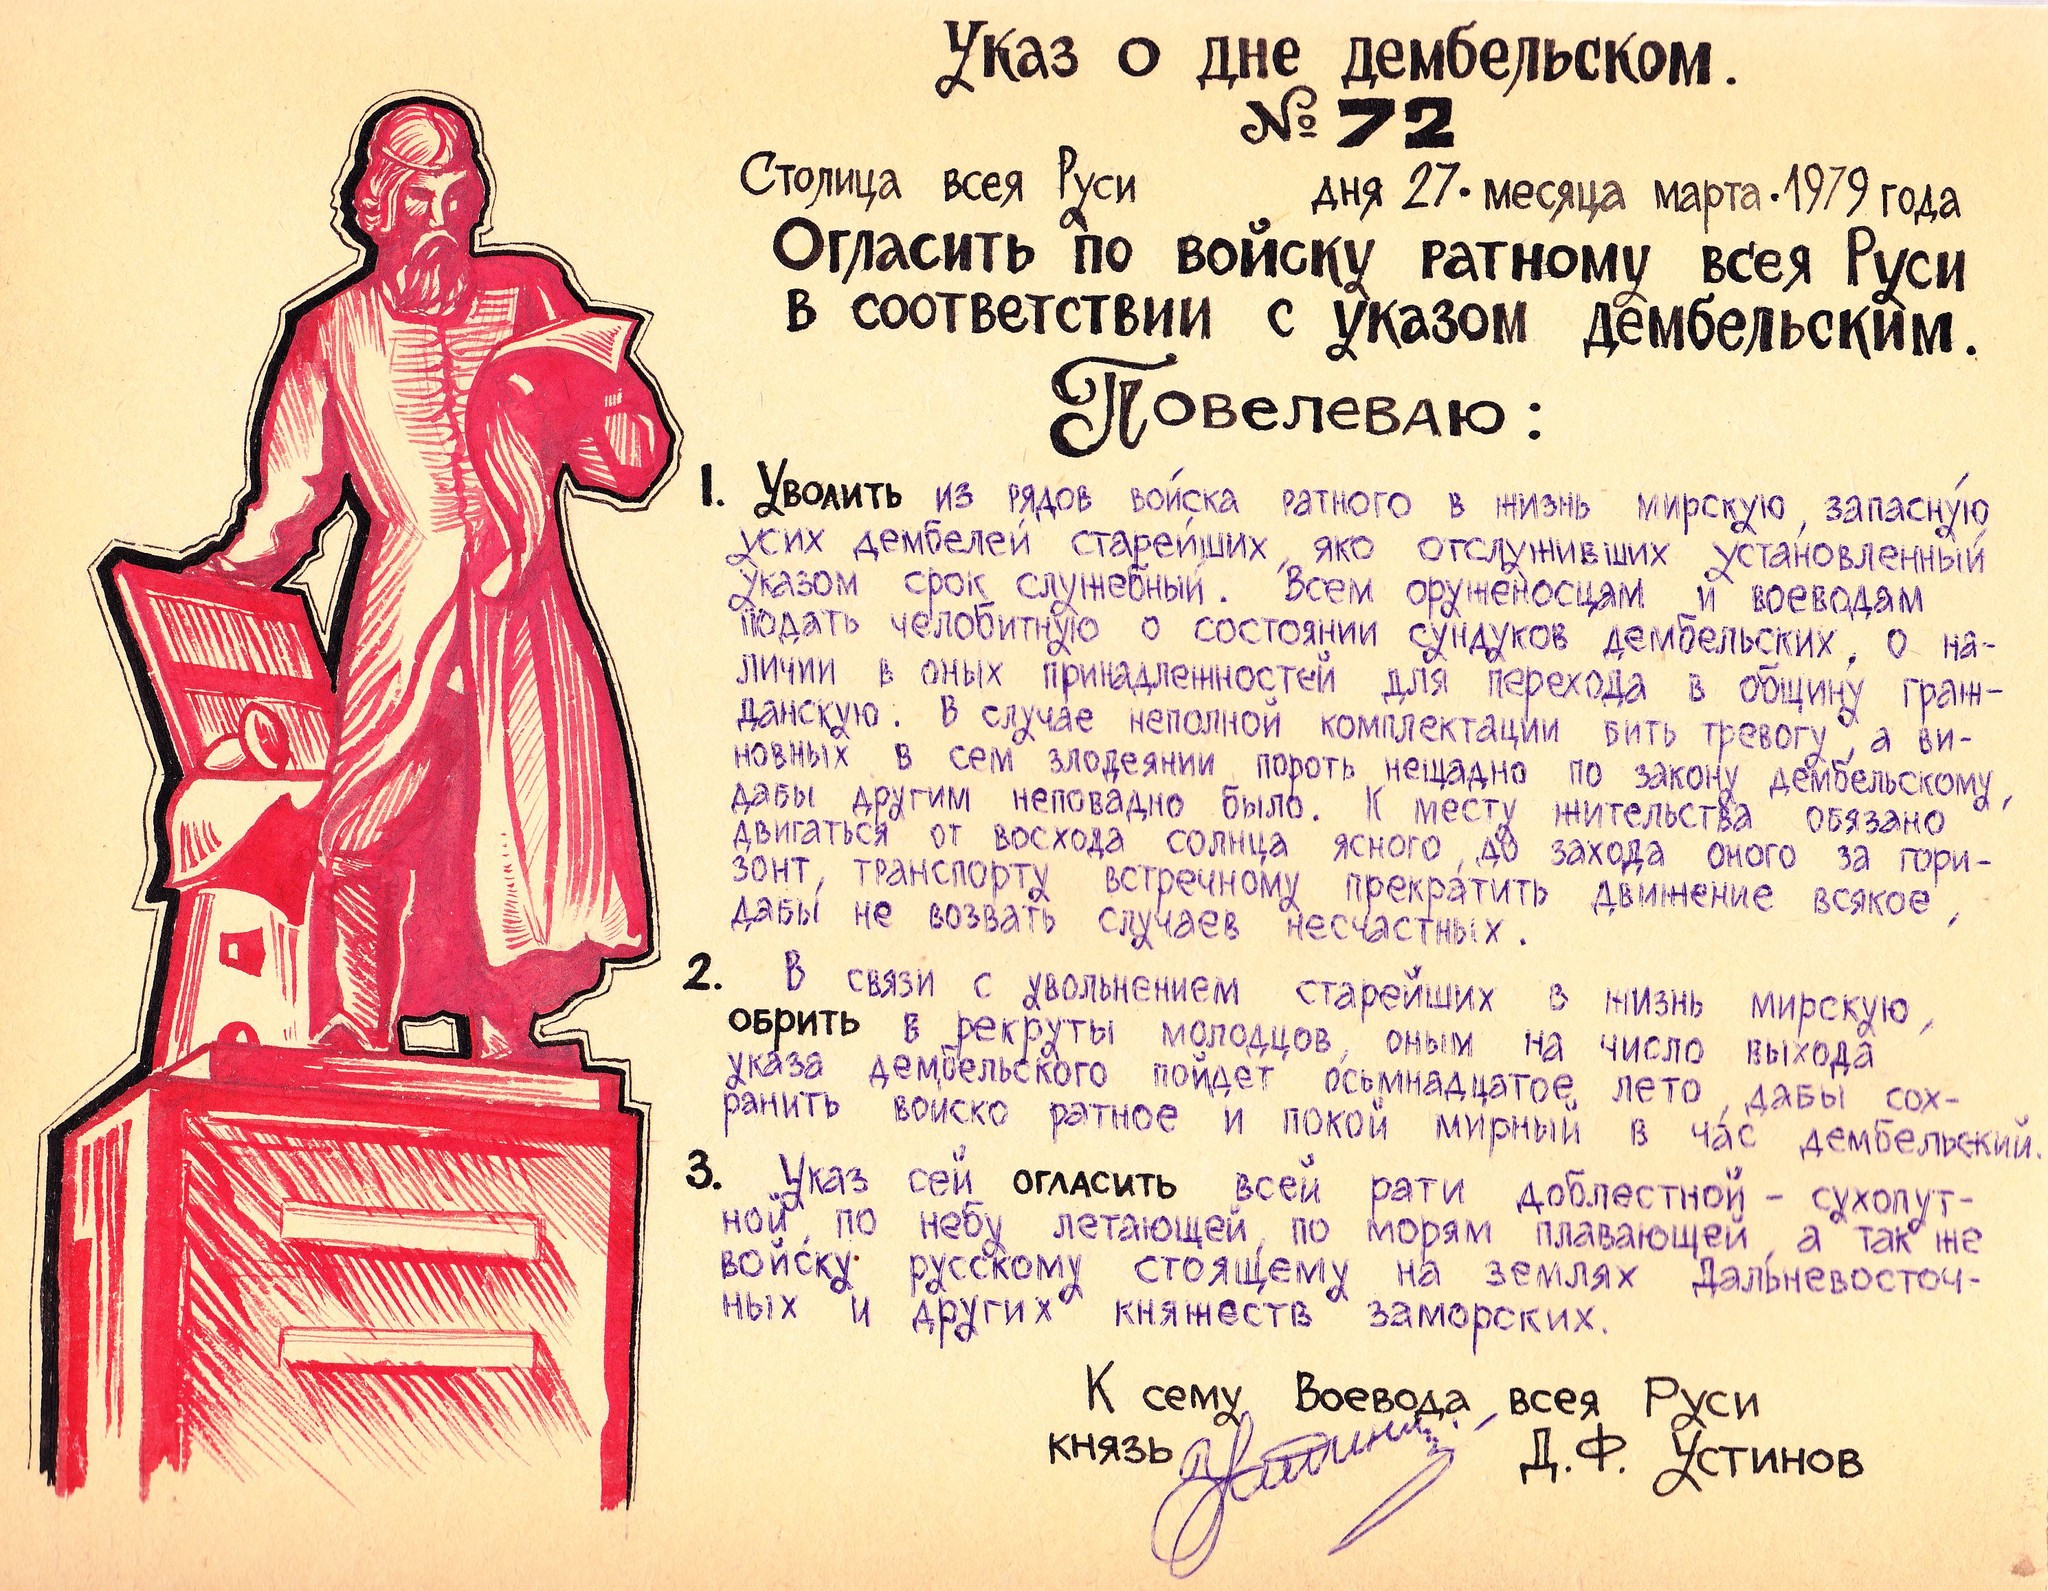 Указ о дне дембельском.
№ 72
Столица всея Руси дня 27. месяца марта. 1979 года
Огласить по войску ратному всея Руси
в соответствии с указом дембельским.
Повелеваю:
1. Уволить из рядов войска ратного в жизнь мирскую, запасную
усих дембелей старейших, яко отслуживших установленный
указом срок служебный. Всем оруженосцам и воеводам
подать челобитную о состоянии сундуков дембельских, о на-
личии в оных принадлежностей для перехода в общину граж-
данскую. В случае неполной комплектации бить тревогу, а ви-
новных в сем злодеянии пороть нещадно по закону дембельскому,
дабы другим неповадно было. К месту жительства обязано
двигаться от восхода солнца ясного, до захода оного за гори-
зонт, транспорту встречному прекратить движение всякое,
дабы не возвать случаев несчастных.
2. В связи с увольнением старейших в жизнь мирскую,
обрить в рекруты молодцов, оным на число выхода
указа дембельского пойдет осьмнадцатое лето, дабы сох-
ранить войско ратное и покой мирный в час дембельский.
3. Указ сей огласить всей рати доблестной - сухопут-
ной, по небу летающей, по морям плавающей, а так же
войску русскому стоящему на землях Дальневосточ-
ных и других княжеств заморских.
К сему Воевода всея Руси
князь Устинов Д.Ф. Устинов